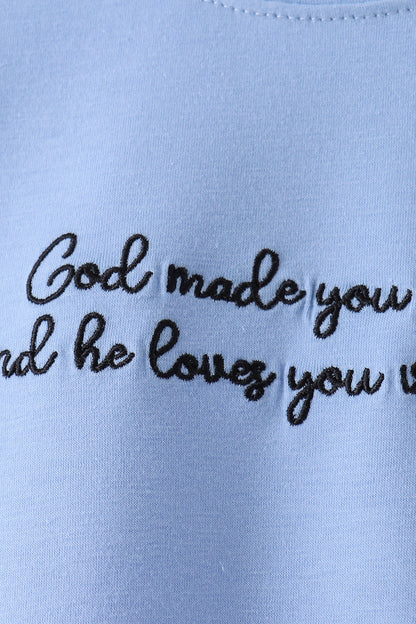 God made you
nd he loves you